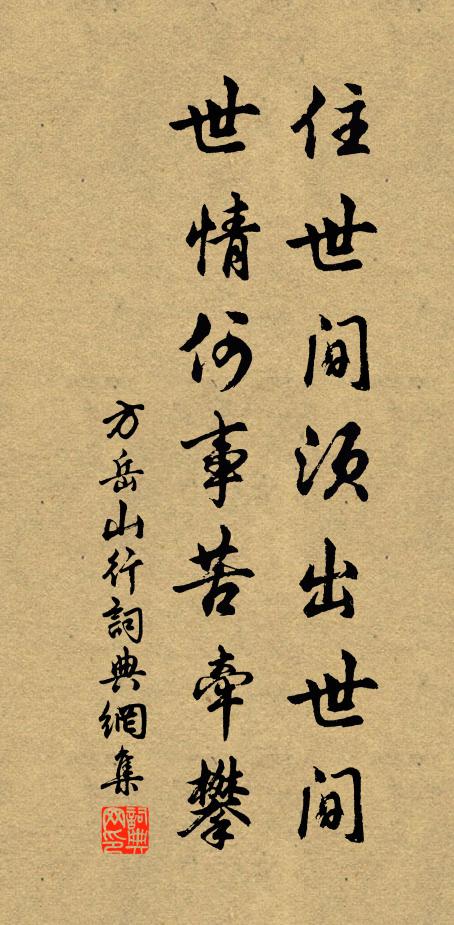 住世间须出世间
世情何事苦牵攀
方岳山行詞典網集
詞典網印